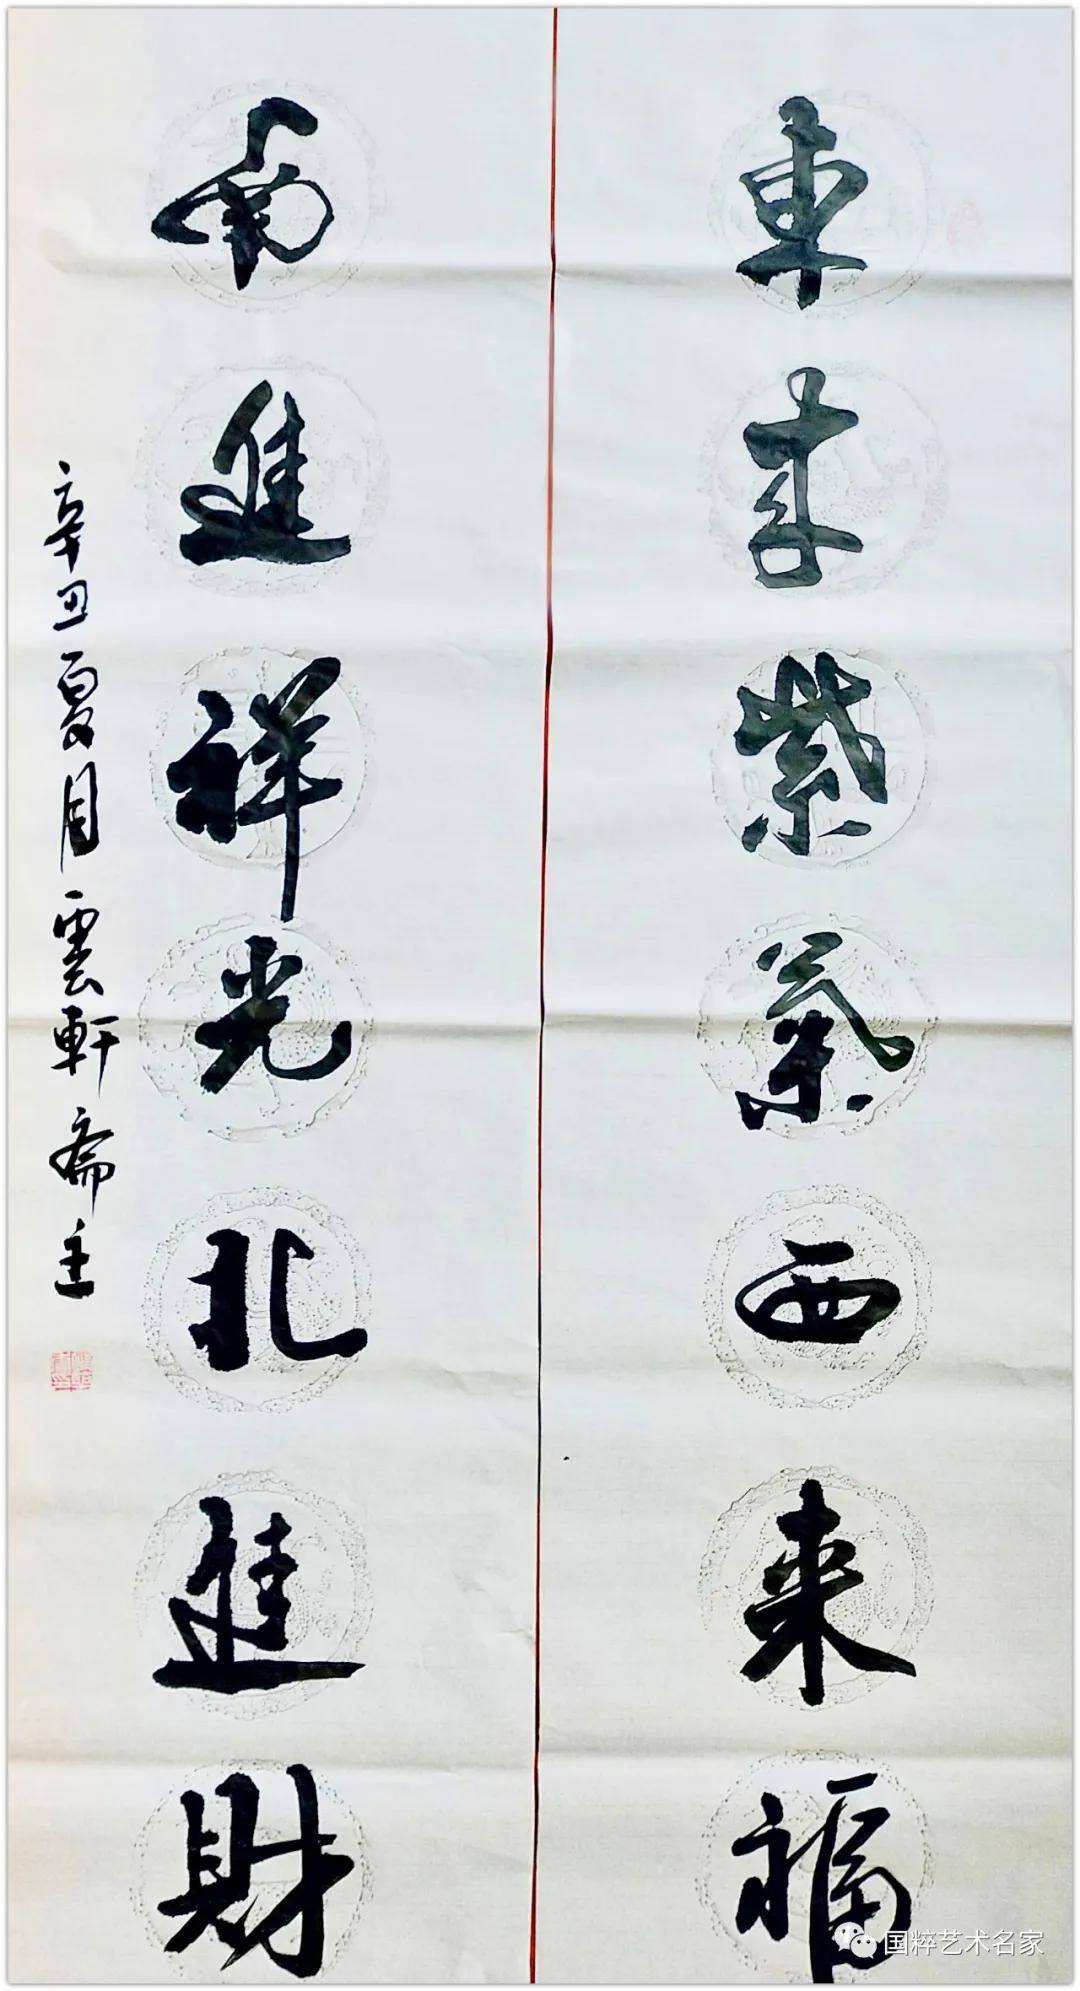 東来紫氣西来福
南進祥光北進財
辛丑夏月雲軒斋主
国粹艺术名家